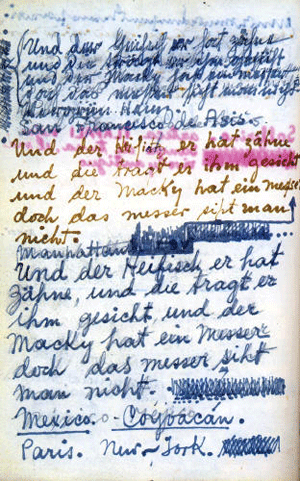 (Und der Heifisch er hat zähne
und die tragt er ihm gesicht
und der Macky hat ein messer
doch das messer siht man nicht
San Francisco de Asis.
Und der Heifish, er hat zähne
und die tragt er ihm gesicht
und der Macky hat ein messer
doch das messer siht man
nicht.
Manhattan
Und der Heifisch er hat
zähne, und die tragt er
ihm gesicht, und der
Macky hat ein messer
doch das messer siht
man nicht.
Mexico. - Coyoacán.
Paris. New-York.